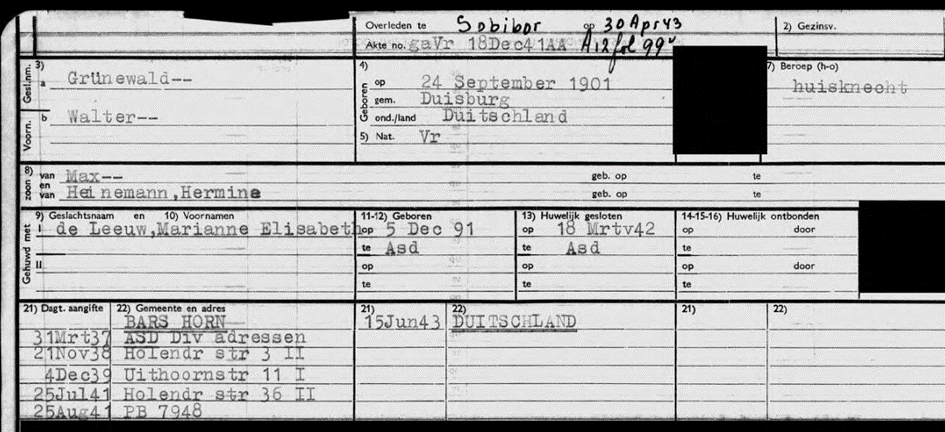 Overleden te Sobibor op 30 Apr 43
2) Gezinsv.
Akte no. gaVr 18Dec41AA A12 fol 99v
Gesl.nm.
3)
a Grünewald--
Voorn.
b Walter--
4)
Geboren
op 24 September 1901
gem. Duisburg
ond./land Duitschland
5) Nat. Vr
7) Beroep (h-o)
huisknecht
8)
zoon
van Max-- geb. op te
en
van Heinemann,Hermine geb. op te
Gehuwd met
9) Geslachtsnaam en 10) Voornamen
I de Leeuw,Marianne Elisabeth
II
11-12) Geboren
op 5 Dec 91
te Asd
op
te
13) Huwelijk gesloten
op 18 Mrtv42
te Asd
op
te
14-15-16) Huwelijk ontbonden
op door
te
op door
te
21) Dagt. aangifte 22) Gemeente en adres
BARS HORN
31Mrt37 ASD Div adressen
21Nov38 Holendr str 3 II
4Dec39 Uithoornstr 11 I
25Jul41 Holendr str 36 II
25Aug41 PB 7948
21) 22)
15Jun43 DUITSCHLAND
21) 22)